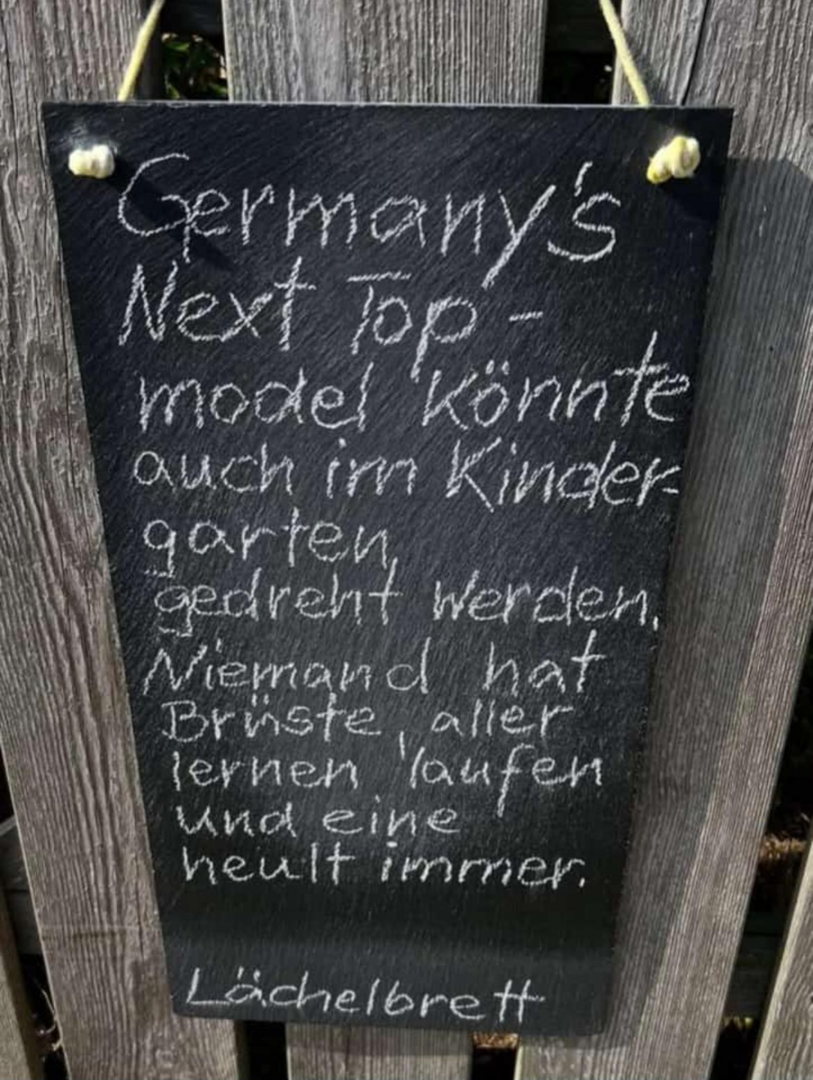 Germany's
Next Top -
model könnte
auch im Kinder-
garten
gedreht werden.
Niemand hat
Brüste, aller
lernen laufen
und eine
heult immer.
Lächelbrett